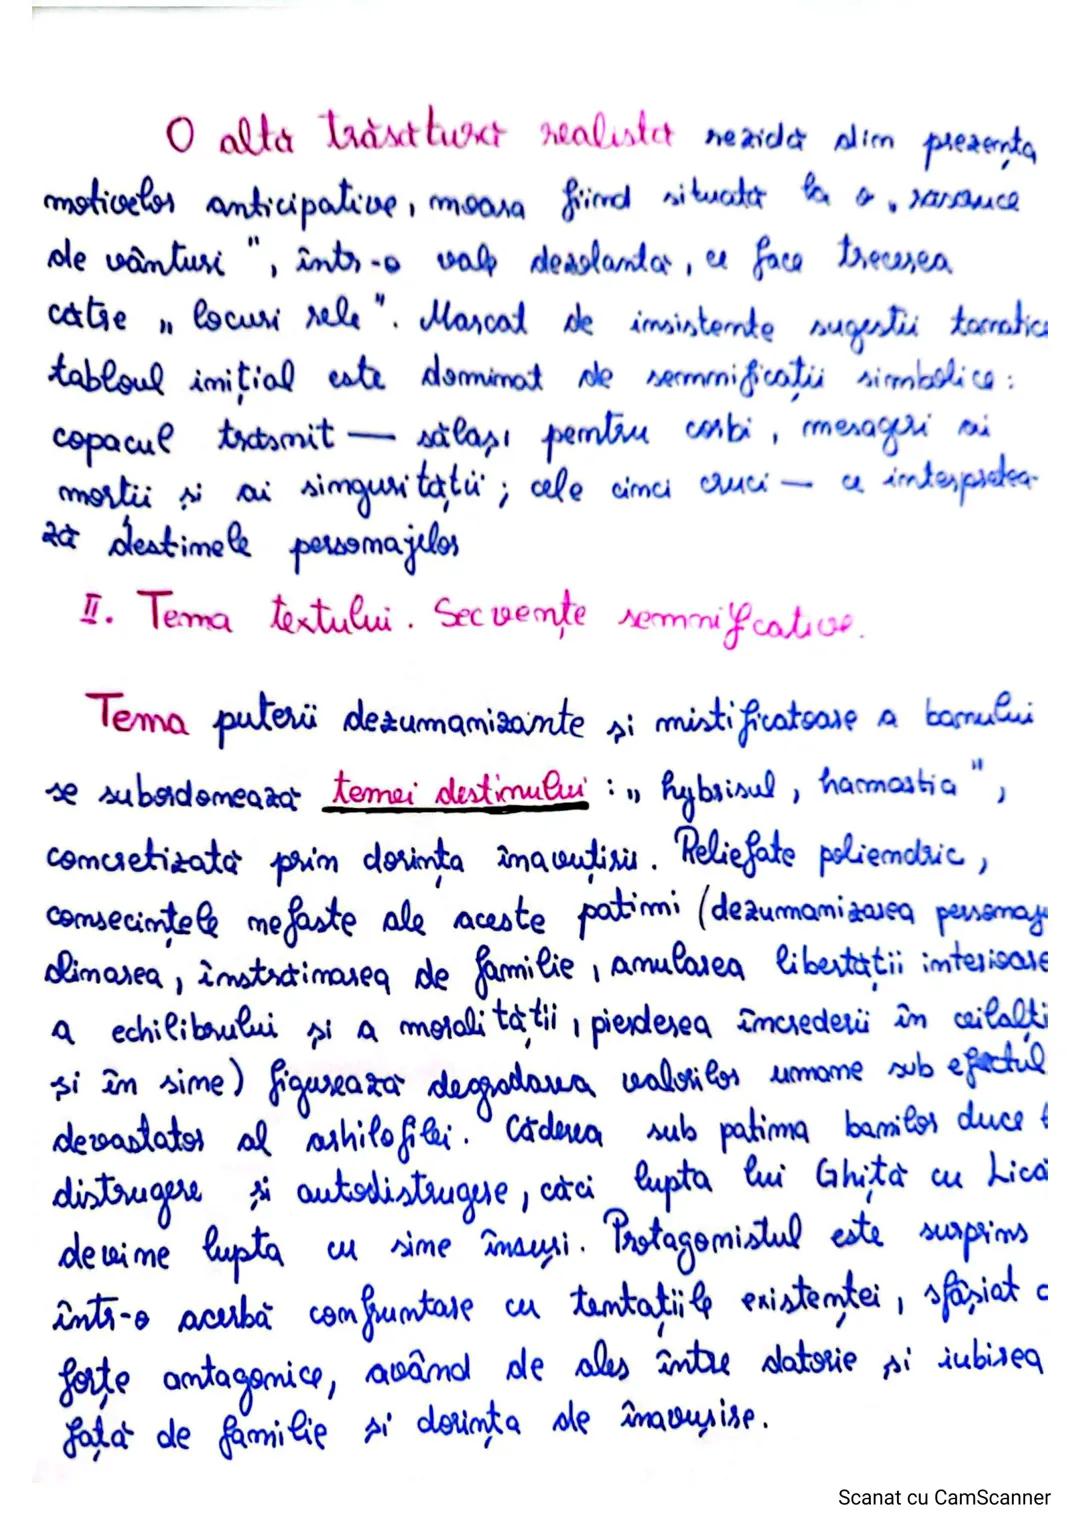 O altă trăsătură realistă rezidă din prezența
motivelor anticipative, moara fiind situată la o „ rasance
de vânturi ", într-o vale dezolantă, ce face trecerea
către „ locuri rele ". Marcat de insistente sugestii tanatice
tabloul inițial este dominat de semnificații simbolice :
copacul trăsnit — sălaș pentru corbi, mesageri ai
morții și ai singurătății ; cele cinci cruci — ce interpretea-
ză destinele personajelor
II. Tema textului. Secvențe semnificative.
Tema puterii dezumanizante și mistificatoare a banului
se subordonează temei destinului : „ hybrisul, hamartia ",
concretizată prin dorința înavuțirii. Reliefate poliendric,
consecințele nefaste ale aceste patimi (dezumanizarea personaj
dinarea, înstrăinarea de familie, anularea libertății interioare
a echilibrului și a moralității, pierderea încrederii în ceilalți
și în sine) figurează degradarea valorilor umane sub efectul
devastator al arhilofiliei. Căderea sub patima banilor duce
distrugere și autodistrugere, căci lupta lui Ghiță cu Lică
devine lupta cu sine însuși. Protagonistul este surprins
într-o acerbă confruntare cu tentațiile existenței, sfâșiat
forțe antagonice, având de ales între datorie și iubirea
față de familie și dorința de înavușire.
Scanat cu CamScanner